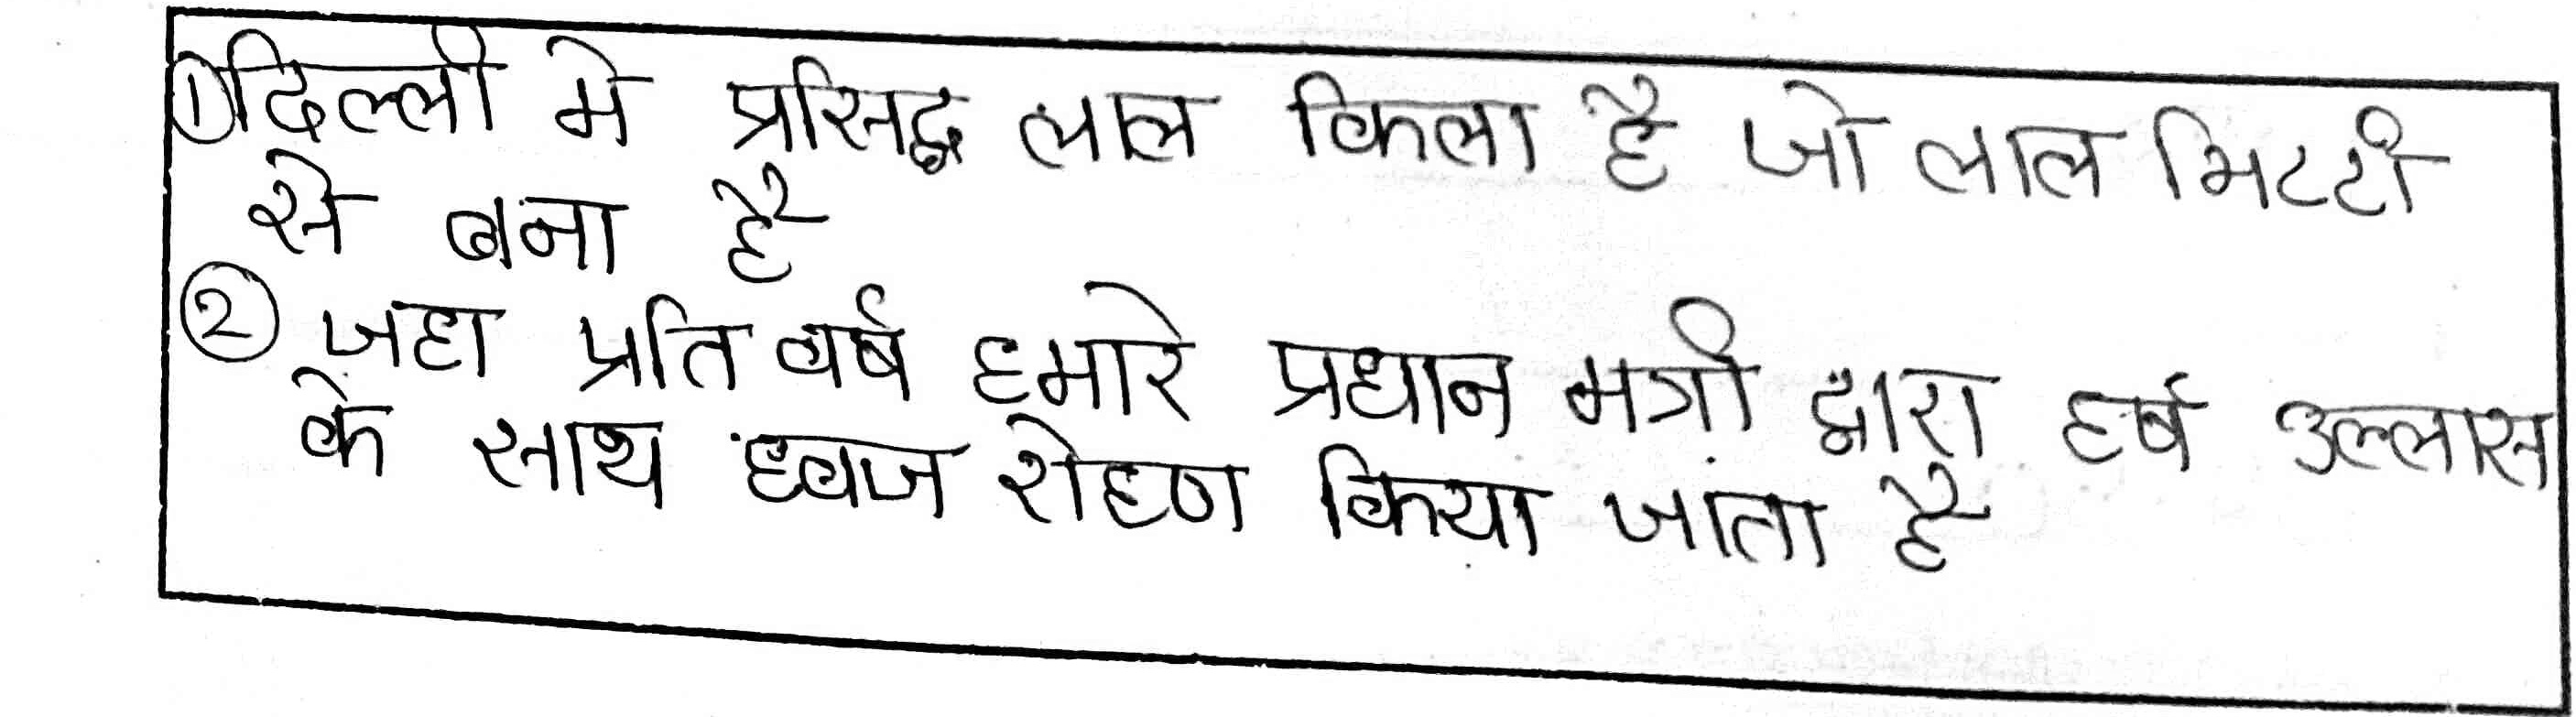 ① दिल्ली मे प्रसिद्ध लाल किला है जो लाल मिटटी
से बना है
② जहा प्रति वर्ष हमारे प्रधान मत्री द्वारा हर्ष उल्लास
के साथ ध्वज रोहण किया जाता है